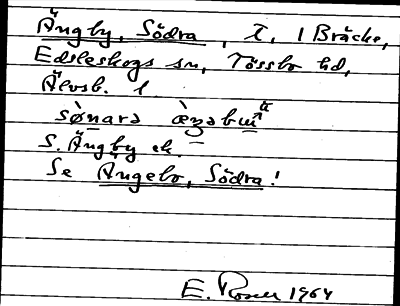 Ängby, Södra, t, 1 Bräcke,
Edsleskogs sn, Tössbo hd,
Älvsb. l.
sø̀nara æ̀ŋəbɯ
S. Ängby ek.
Se Ängebo, Södra!
E. Rosen 1964